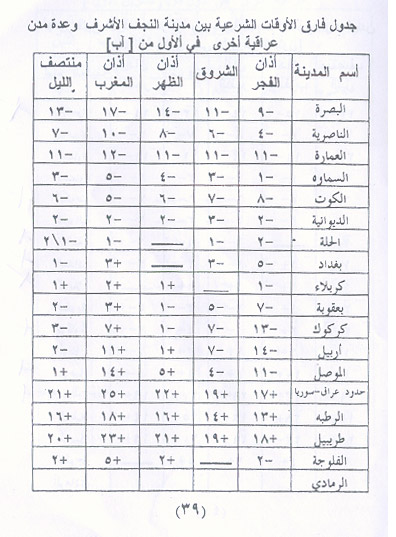 جدول فارق الأوقات الشرعية بين مدينة النجف الأشرف وعدة مدن
عراقية أخرى في ألأول من [آب]
أسم المدينة أذان الفجر الشروق أذان الظهر أذان المغرب منتصف الليل
البصرة -٩ -١١ -١٤ -١٧ -١٣
الناصرية -٤ -٦ -٨ -١٠ -٧
العمارة -١١ -١١ -١١ -١٢ -١١
السماوه -١ -٣ -٤ -٥ -٣
الكوت -٨ -٧ -٦ -٥ -٦
الديوانية -٢ -٣ -٢ -٢ -٢
الحلة -٢ -١ — -١ -١\٢
بغداد -٥ -٣ — +٣ -١
كربلاء -١ — +١ +٢ +١
بعقوبة -٧ -٥ -١ +٣ -٢
كركوك -١٣ -٧ -١ +٧ -٣
أربيل -١٤ -٧ +١ +١١ -٢
الموصل -١١ -٤ +٥ +١٤ +١
حدود عراق-سوريا +١٧ +١٩ +٢٢ +٢٥ +٢١
الرطبه +١٣ +١٤ +١٦ +١٨ +١٦
طريبيل +١٨ +١٩ +٢١ +٢٣ +٢٠
الفلوجة -٢ — +٢ +٥ +٢
الرمادي
(٣٩)